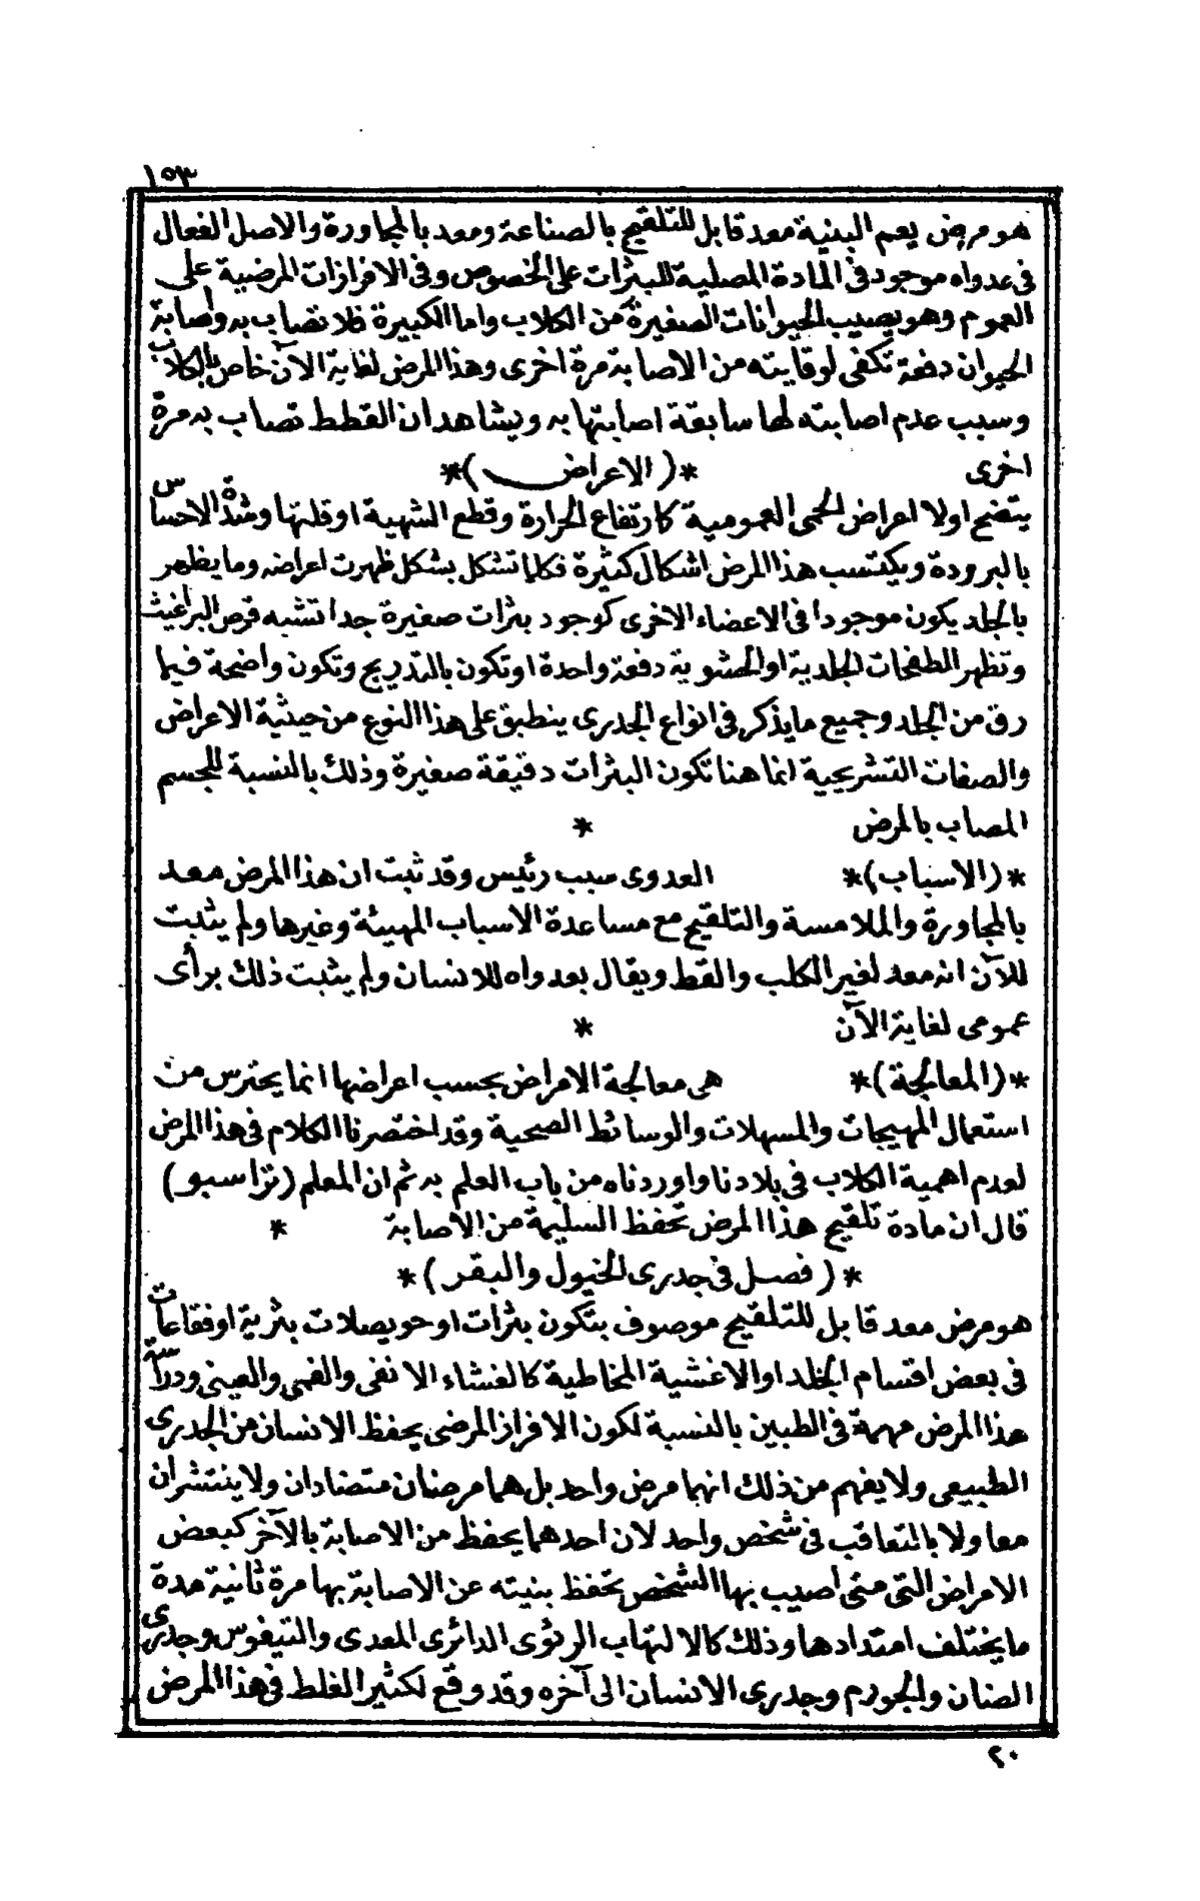 ١٥٣
هو مرض يعم البنية معد قابل للتلقيح بالصناعة ومعد بالمجاورة والاصل الفعال
فى عدواه موجود فى المادة المصلية للبثرات على الخصوص وفى الافرازات المرضية على
العموم وهو يصيب الحيوانات الصغيرة من الكلاب واما الكبيرة فلا تصاب به واصابة
الحيوان دفعة تكفى لوقايته من الاصابة مرة اخرى وهذا المرض لغاية الآن خاص بالكلاب
وسبب عدم اصابته لها سابقة اصابتها به ويشاهد ان القطط تصاب به مرة
اخرى * (الاعراض) *
يتضح اولا اعراض الحمى العمومية كارتفاع الحرارة وقطع الشهية او قلتها وشدة الاحساس
بالبرودة ويكتسب هذا المرض اشكال كثيرة فكلما تشكل بشكل ظهرت اعراضه وما يظهر
بالجلد يكون موجودا فى الاعضاء الاخرى كوجود بثرات صغيرة جدا تشبه قرص البراغيث
وتظهر الطفحات الجلدية او الحشوية دفعة واحدة او تكون بالتدريج وتكون واضحة فيما
رق من الجلد وجميع ما يذكر فى انواع الجدرى ينطبق على هذا النوع من حيثية الاعراض
والصفات التشريحية انما هنا تكون البثرات دقيقة صغيرة وذلك بالنسبة للجسم
المصاب بالمرض *
* (الاسباب) * العدوى سبب رئيس وقد ثبت ان هذا المرض معد
بالمجاورة والملامسة والتلقيح مع مساعدة الاسباب المهيئة وغيرها ولم يثبت
للآن انه معد لغير الكلب والقط ويقال بعدواه للانسان ولم يثبت ذلك برأى
عمومى لغاية الآن *
* (المعالجة) * هى معالجة الامراض بحسب اعراضها انما يحترس من
استعمال المهيجات والمسهلات والوسائط الصحية وقد اختصرنا الكلام فى هذا المرض
لعدم اهمية الكلاب فى بلادنا واوردناه من باب العلم به ثم ان المعلم (تراسبو)
قال ان مادة تلقيح هذا المرض تحفظ السليمة من الاصابة *
* (فصل فى جدرى الخيول والبقر) *
هو مرض معد قابل للتلقيح موصوف بتكون بثرات او حويصلات بثرية او فقاعات
فى بعض اقتسام الجلد او الاغشية المخاطية كالغشاء الانفى والفمى والعينى ودراسة
هذا المرض مهمة فى الطبين بالنسبة لكون الافراز المرضى يحفظ الانسان من الجدرى
الطبيعى ولا يفهم من ذلك انهما مرض واحد بل هما مرضان متضادان ولا ينتشران
معا ولا بالتعاقب فى شخص واحد لان احدهما يحفظ من الاصابة بالآخر كبعض
الامراض التى متى اصيب بها الشخص تحفظ بنيته عن الاصابة بها مرة ثانية مدة
ما يختلف امتدادها وذلك كالالتهاب الرئوى الدائرى المعدى والتيفوس وجدرى
الضان والجورم وجدرى الانسان الى آخره وقد وقع لكثير الغلط فى هذا المرض
٢٠